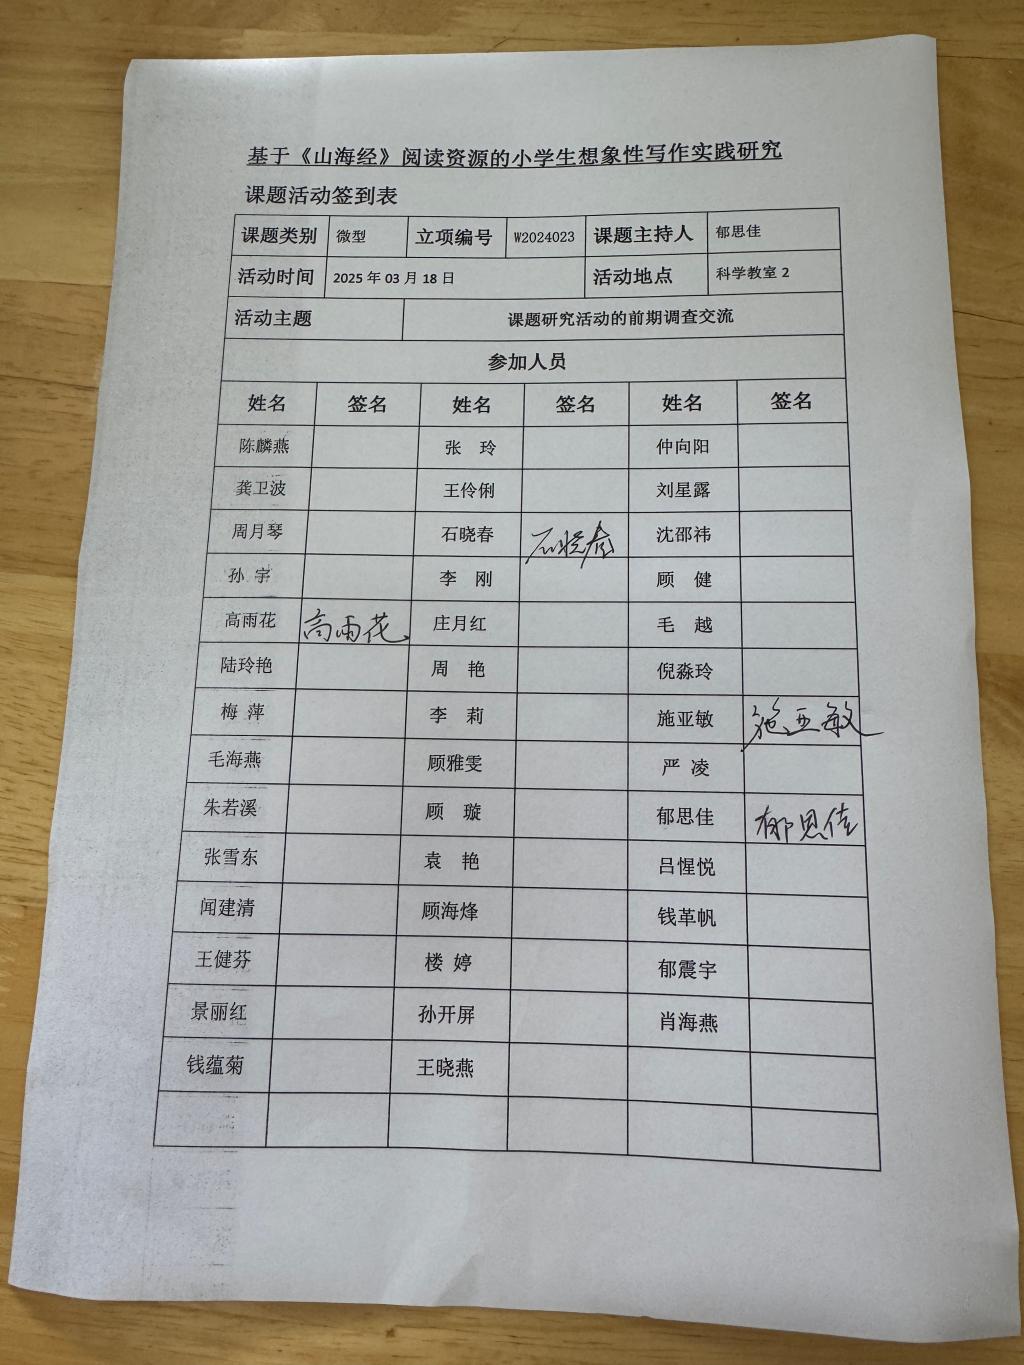 基于《山海经》阅读资源的小学生想象性写作实践研究
课题活动签到表
课题类别 微型 立项编号 W2024023 课题主持人 郁思佳
活动时间 2025 年 03 月 18 日 活动地点 科学教室 2
活动主题 课题研究活动的前期调查交流
参加人员
姓名 签名 姓名 签名 姓名 签名
陈麟燕 张 玲 仲向阳
龚卫波 王伶俐 刘星露
周月琴 石晓春 石晓春 沈邵祎
孙 宇 李 刚 顾 健
高雨花 高雨花 庄月红 毛 越
陆玲艳 周 艳 倪淼玲
梅 萍 李 莉 施亚敏 施亚敏
毛海燕 顾雅雯 严 凌
朱若溪 顾 璇 郁思佳 郁思佳
张雪东 袁 艳 吕惺悦
闻建清 顾海烽 钱革帆
王健芬 楼 婷 郁震宇
景丽红 孙开屏 肖海燕
钱蕴菊 王晓燕